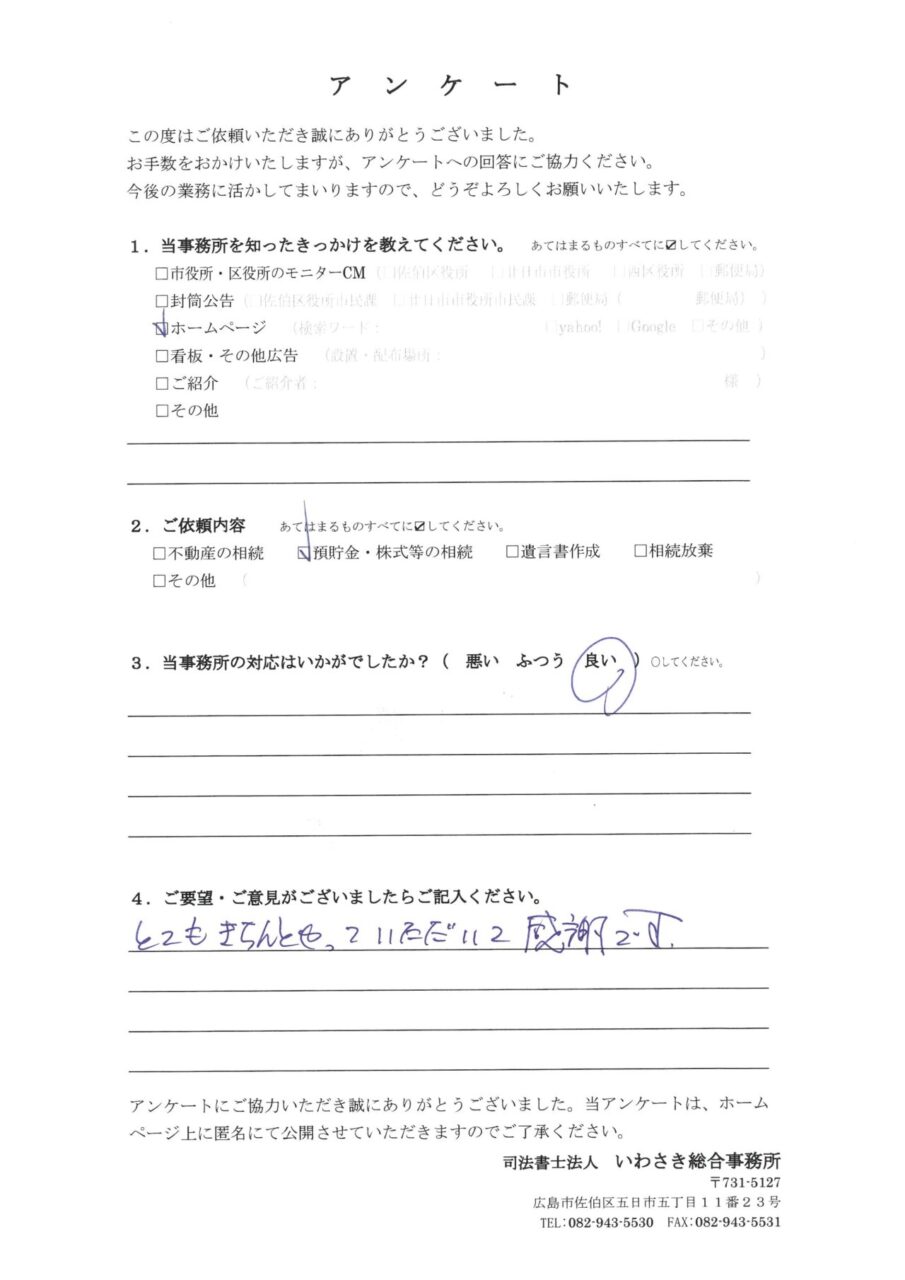 アンケート
この度はご依頼いただき誠にありがとうございました。
お手数をおかけいたしますが、アンケートへの回答にご協力ください。
今後の業務に活かしてまいりますので、どうぞよろしくお願いいたします。
1．当事務所を知ったきっかけを教えてください。 あてはまるものすべてに☑してください。
□市役所・区役所のモニターCM (□佐伯区役所 □廿日市市役所 □西区役所 □郵便局)
□封筒公告 (□佐伯区役所市民課 □廿日市市役所市民課 □郵便局( 郵便局) )
☑ホームページ (検索ワード: )□yahoo! □Google □その他 )
□看板・その他広告 (設置・配布場所: )
□ご紹介 (ご紹介者: 様 )
□その他
2．ご依頼内容 あてはまるものすべてに☑してください。
□不動産の相続 ☑預貯金・株式等の相続 □遺言書作成 □相続放棄
□その他 ( )
3．当事務所の対応はいかがでしたか？( 悪い ふつう 良い ) ○してください。
4．ご要望・ご意見がございましたらご記入ください。
とてもきちんとやっていただいて感謝です.
アンケートにご協力いただき誠にありがとうございました。当アンケートは、ホーム
ページ上に匿名にて公開させていただきますのでご了承ください。
司法書士法人 いわさき総合事務所
〒731-5127
広島市佐伯区五日市五丁目１１番２３号
TEL:082-943-5530 FAX:082-943-5531